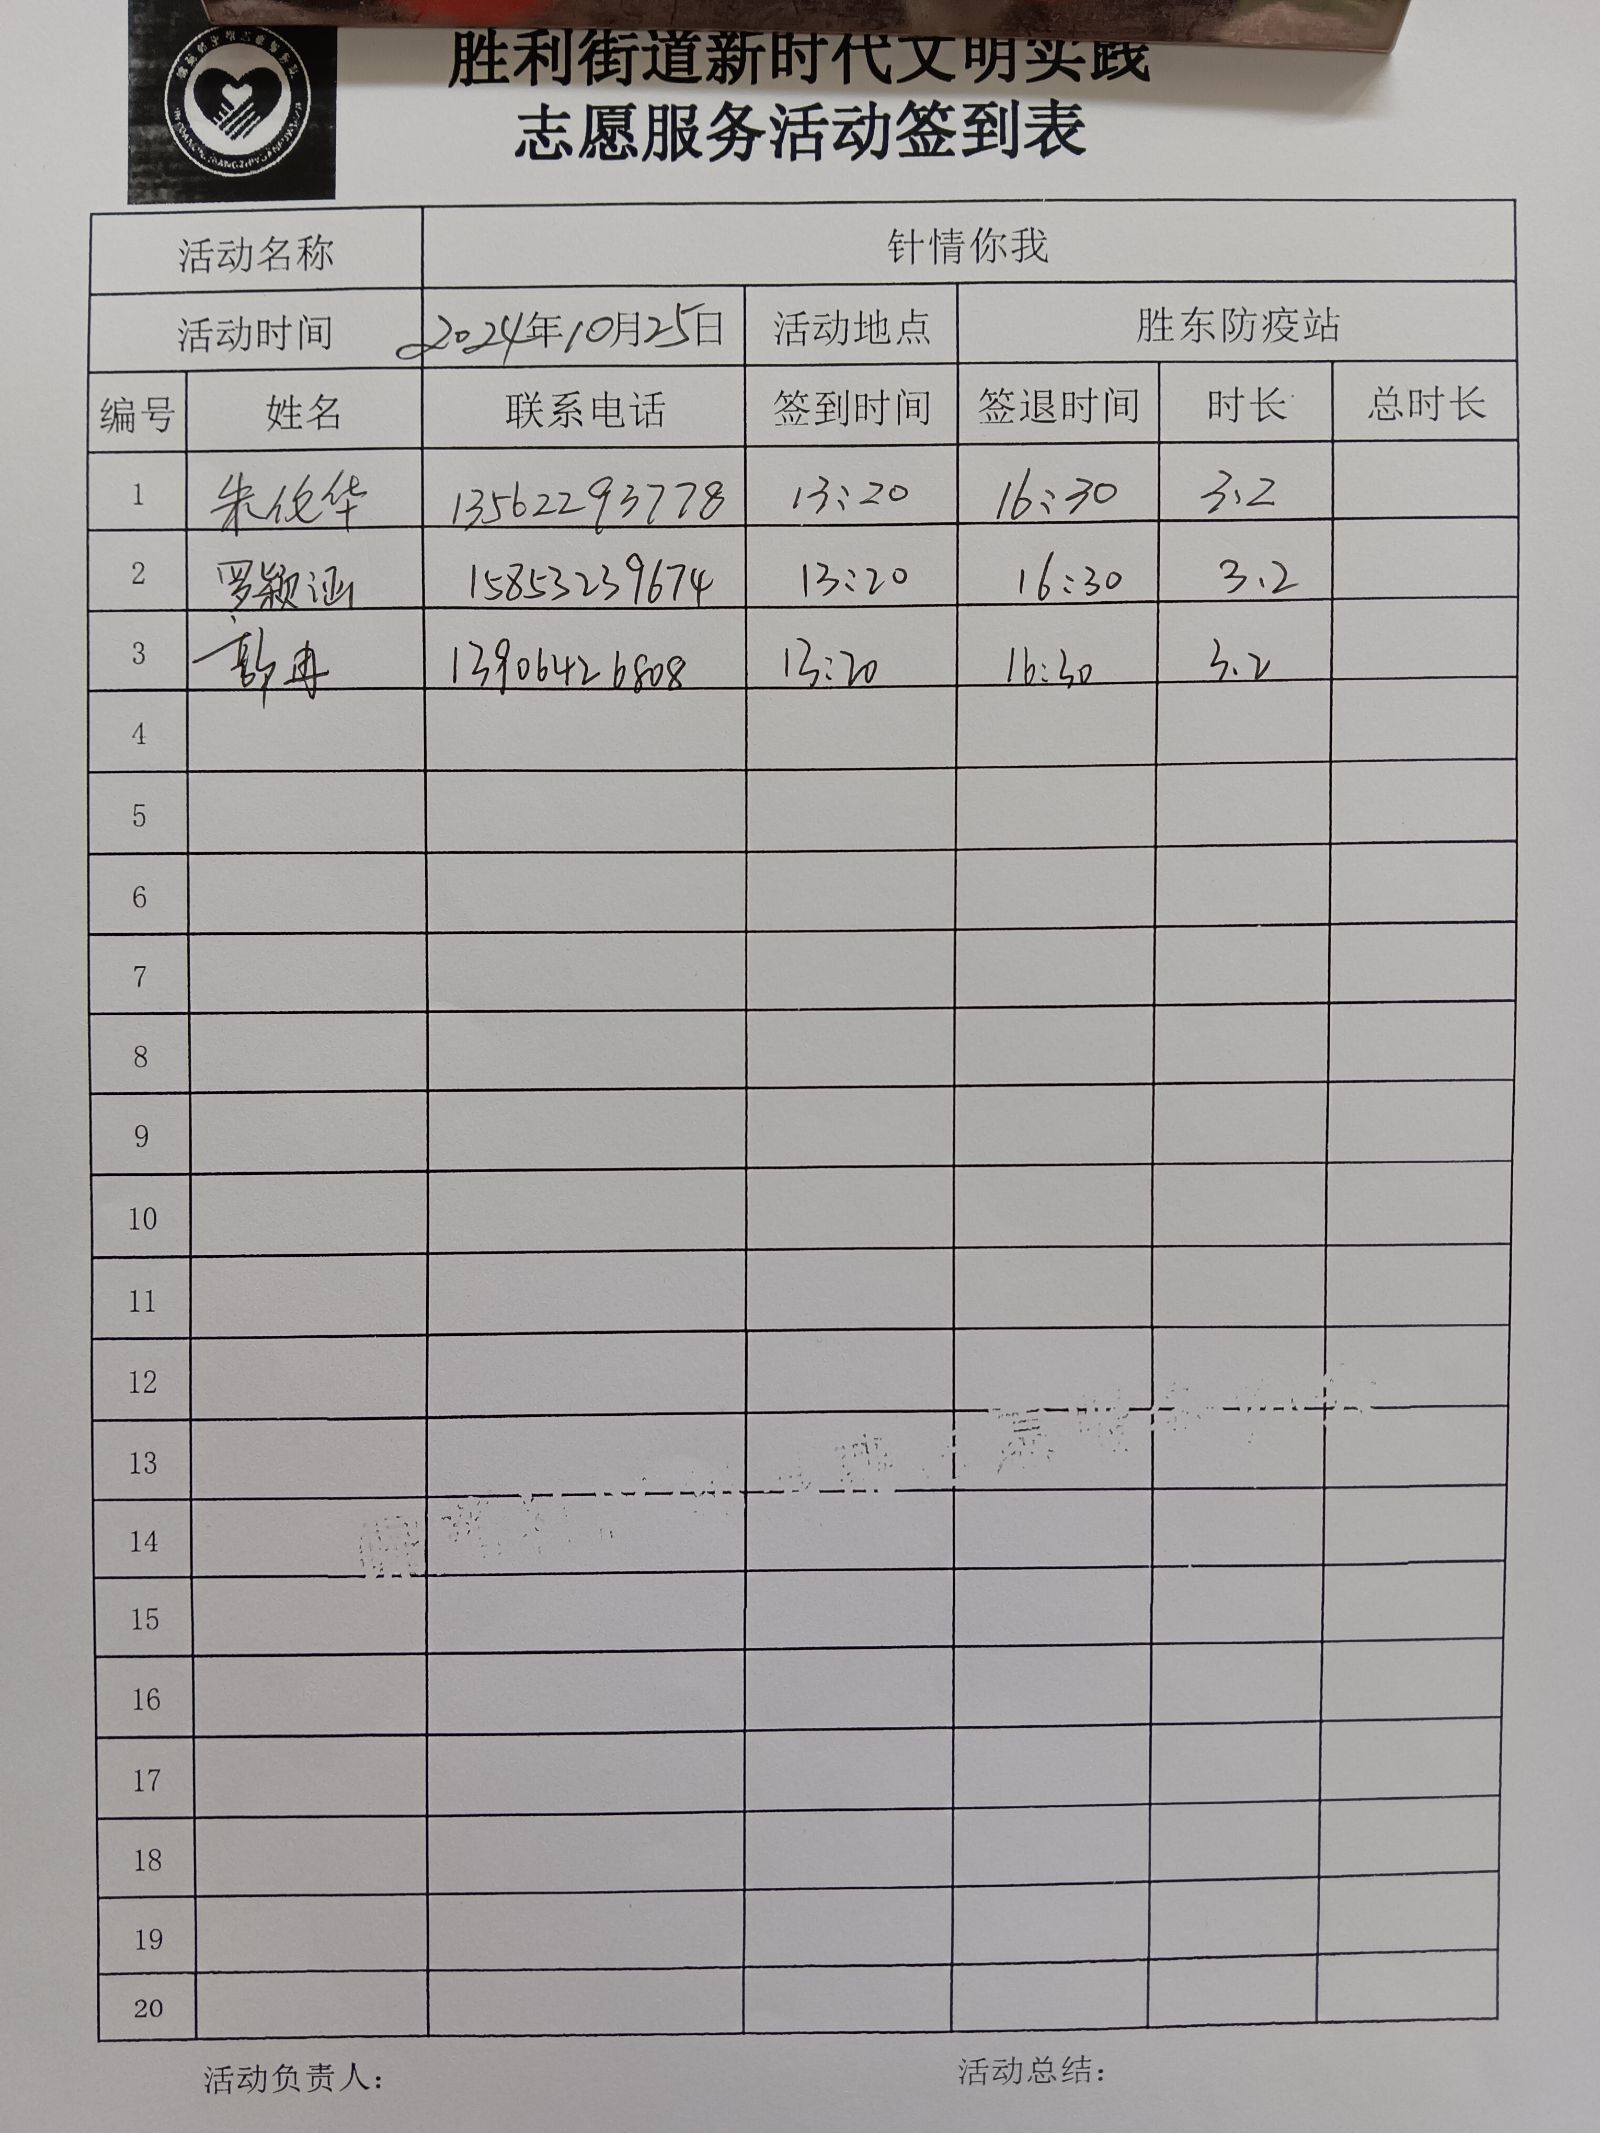 胜利街道新时代文明实践
志愿服务活动签到表
活动名称 针情你我
活动时间 2024年10月25日 活动地点 胜东防疫站
编号 姓名 联系电话 签到时间 签退时间 时长 总时长
1 朱俊华 13562293778 13:20 16:30 3.2
2 罗颖涵 15853239674 13:20 16:30 3.2
3 郭冉 13906426808 13:20 16:30 3.2
4
5
6
7
8
9
10
11
12
13
14
15
16
17
18
19
20
活动负责人: 活动总结: